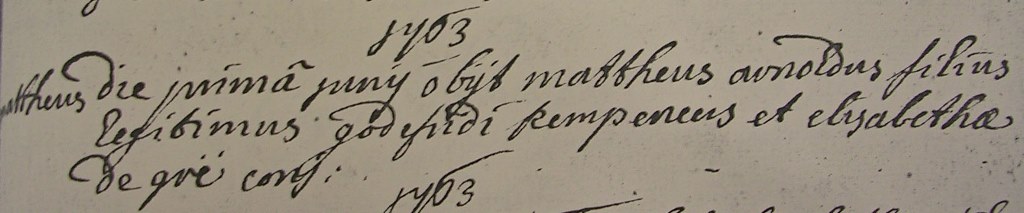 1763
mattheus die primâ junij obijt mattheus arnoldus filius
legitimus godefridi kempeneers et elisabethæ
de grë conj:
1763